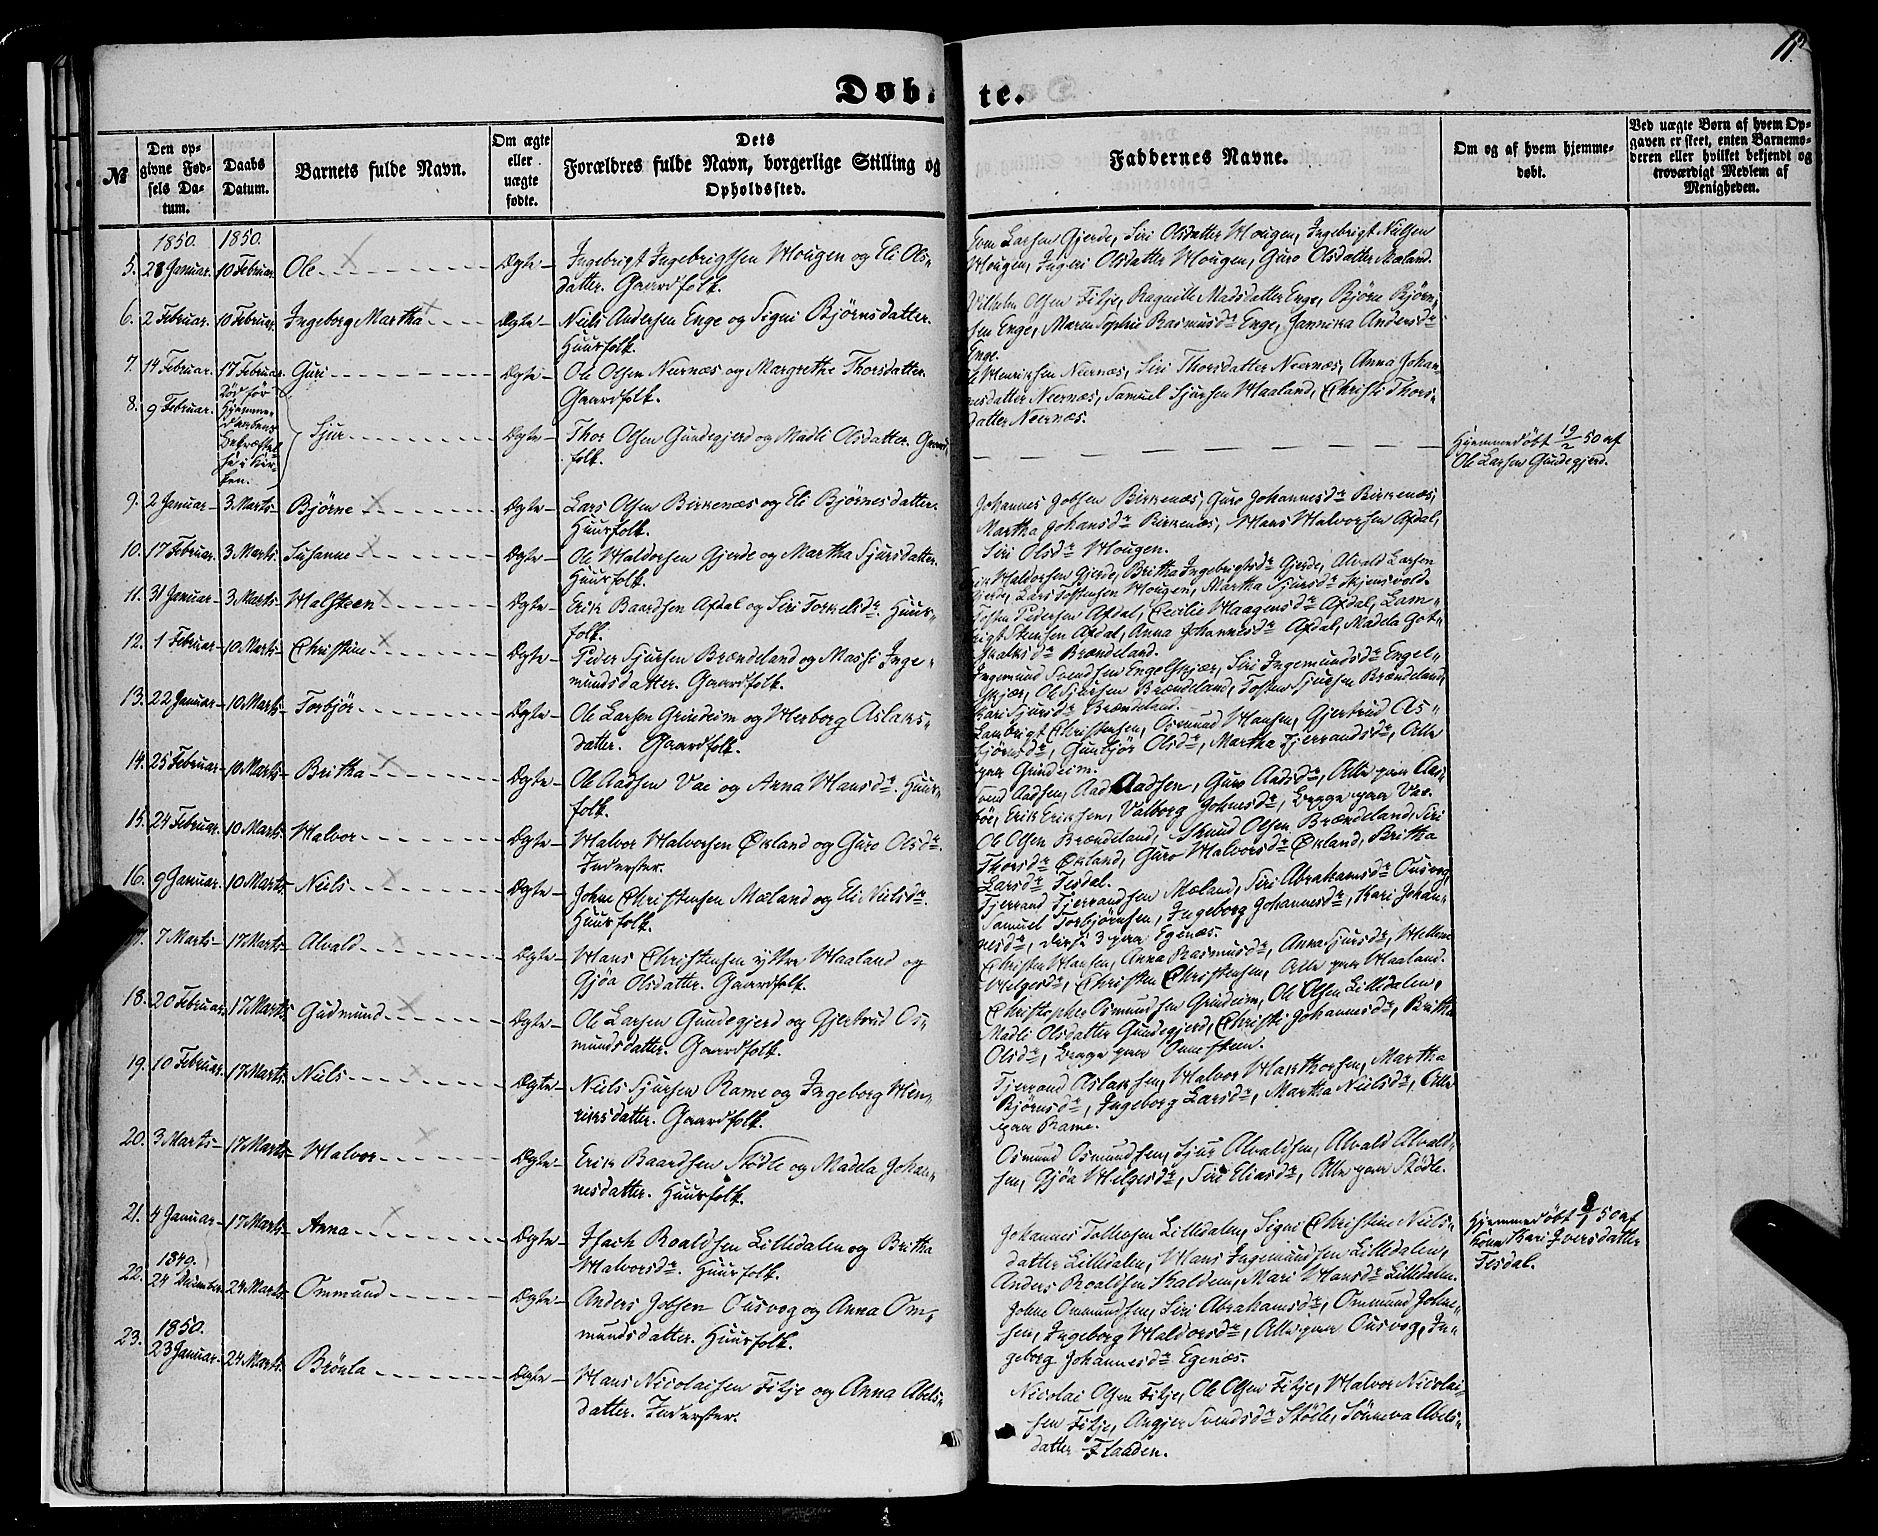 11.
Døbte.
№
Den opgivne Fødsels Datum.
Daabs Datum.
Barnets fulde Navn.
Om ægte eller uægte fødte.
Dets Forældres fulde Navn, borgerlige Stilling og Opholdssted.
Faddernes Navne.
Om og af hvem hjemmedøbt.
Ved uægte Børn af hvem Opgaven er skeet, enten Barnemoderen eller hvilket bekjendt og troværdigt Medlem af Menigheden.
1850. 1850.
5. 28 Januar. 10 Februar. Ole Ægte Ingebrigt Ingebrigtsen Hougen og Eli Ols-
datter. Gaardfolk.
Sven Larsen Gjerde, Siri Olsdatter Hougen, Ingebrigt Nilsen
Hougen, Ingeri Olsdatter Hougen, Guro Olsdatter Mæland.
6. 2 Februar. 10 Februar. Ingeborg Martha Ægte Niels Andersen Enge og Signi Bjørnsdatter.
Huusfolk.
Vilhelm Olsen Fitje, Ragnilde Madsdatter Enge, Bjørn Bjørn-
sen Enge, Maren Sophie Rasmusdr Enge, Jannika Andersdr
Enge.
7. 14 Februar. 17 Februar. Guri Ægte Ole Olsen Neernæs og Margrethe Thorsdatter.
Gaardfolk.
Ole Henriksen Neernæs, Siri Thorsdatter Neernæs, Anna Johan-
nesdatter Neernæs, Samuel Sjursen Haaland, Christi Thors-
datter Neernæs.
8. 9 Februar. Død før
Hjemme-
daabens
Bekræftel-
se i Kir-
ken. Sjur Ægte Thor Olsen Gundegjerd og Madli Olsdatter. Gaard-
folk.
Hjemmedøbt 12/2 50 af
Ole Larsen Gundegjerd.
9. 2 Januar 3 Marts Bjørne Ægte Lars Olsen Birkenæs og Eli Bjørnesdatter.
Huusfolk.
Johannes Jobsen Birkenæs, Guro Johannesdr Birkenæs,
Martha Johansdr Birkenæs, Hans Halvorsen Afdal,
Siri Olsdr Hougen.
10. 17 Februar. 3 Marts Susanne Ægte Ole Haldorsen Gjerde og Martha Sjursdatter.
Huusfolk.
Haldorsen Gjerde, Britha Ingebrigtsdr Gjerde, Alvald Larsen
Gjerde, Lars Tostensen Hougen, Martha Sjursdr Skjensvold.
11. 31 Januar 3 Marts Halsteen Ægte Erik Baardsen Afdal og Siri Torkelsdr. Huus-
folk.
Tosten Pedersen Afdal, Cecilie Haagensdr Afdal, Lam-
brigt Steinsen Afdal, Anna Johannesdr Afdal, Madela Got-
skalksdr Brændeland.
12. 1 Februar 10 Marts Christine Ægte Peder Sjursen Brændeland og Massi Inge-
mundsdatter. Gaardfolk.
Ingemund Svendsen Engelskjær, Siri Ingemundsdr Engel-
skjær, Ole Sjursen Brændeland, Tosten Sjursen Brændeland,
Kari Sjursdr Brændeland.
13. 22 Januar 10 Marts Torbjør Ægte Ole Larsen Grindeim og Herborg Aslaks-
datter. Gaardfolk.
Lambrigt Christensen, Osmund Hansen, Gjertrud As-
bjørnsdr, Guntjør Olsdr, Martha Fjerrandsdr, Alle
paa Grindeim.
14. 25 Februar 10 Marts Britha Ægte Ole Aadsen Vae og Anna Hansdr. Huus-
folk.
Svend Aadsen, Aad Aadsen, Guro Aadsdr, Alle paa Aas-
bøe, Erik Eriksen, Valborg Johnesdr, Begge paa Vae.
15. 24 Februar. 10 Marts Halvor Ægte Halvor Halvorsen Økland og Guro Olsdr.
Inderster.
Ole Olsen Brændeland, Amund Olsen Brændeland, Siri
Thorsdr Økland, Guro Halvorsdr Økland, Britha
Larsdr Tesdal.
16. 9 Januar. 10 Marts Niels Ægte Johne Christensen Mæland og Eli Nielsdr.
Huusfolk.
Fjerrand Fjerrandsen Mæland, Siri Abrahamsdr Ousvog,
Samuel Torbjørnsen, Ingeborg Johannesdr, Kari Johan-
nesdr, disse 3 paa Egenæs.
17. 7 Marts 17 Marts Alvald Ægte Hans Christensen yttre Haaland og
Gjøa Olsdatter. Gaardfolk.
Christen Hansen, Anna Rasmusdr, Anna Sjursdr, Hellene
Helgesdr, Christen Christensen, Alle paa Haaland.
18. 20 Februar. 17 Marts Gudmund Ægte Ole Larsen Gundegjerd og Gjertrud Os-
mundsdatter. Gaardfolk.
Christopher Osmundsen Grindeim, Ole Olsen Lilledalen,
Madli Olsdatter Gundegjerd, Christi Johannesdr, Britha
Olsdr, Begge paa Ømesteen.
19. 10 Februar. 17 Marts Niels Ægte Niels Sjursen Rame og Ingeborg Hen-
riksdatter. Gaardfolk.
Fjerrand Aslaksen, Halvor Hakthorsen, Martha
Bjørnsdr, Ingeborg Larsdr, Martha Nielsdr, Alle
paa Rame.
20. 3 Marts 17 Marts Halvor Ægte Erik Baardsen Stødle og Madela Johan-
nesdatter. Huusfolk.
Osmund Osmundsen, Sjur Alvaldsen, Alvald Alvald-
sen, Gjøa Helgesdr, Siri Eliasdr, Alle paa Stødle.
21. 4 Januar 17 Marts Anna Ægte Isach Roaldsen Lilledalen og Britha
Halvorsdr. Huusfolk.
Johannes Tollefsen Lilledalen, Signi Christine Niels-
datter Lilledalen, Hans Ingemundsen Lilledalen,
Anders Roaldsen Skaldem, Mari Hansdr Lilledalen.
Hjemmedøbt 8/1 50 af
Kone Kari Iversdatter
Tesdal.
1849.
22. 24 December 24 Marts Ommund Ægte Anders Jobsen Ousvog og Anna Om-
mundsdatter. Huusfolk.
Johne Ommundsen, Siri Abrahamsdr, Ommund Johne-
sen, Ingeborg Haldorsdr, Alle paa Ousvog, In-
geborg Johannesdr Egenæs.
1850.
23. 23 Januar 24 Marts Brønla Ægte Hans Nicolaisen Fitje og Anna Abels-
datter. Inderster.
Nicolai Olsen Fitje, Ole Olsen Fitje, Halvor Nicolai-
sen Fitje, Angjer Svendsdr Støle, Sønneva Abels-
datter Flaaden.